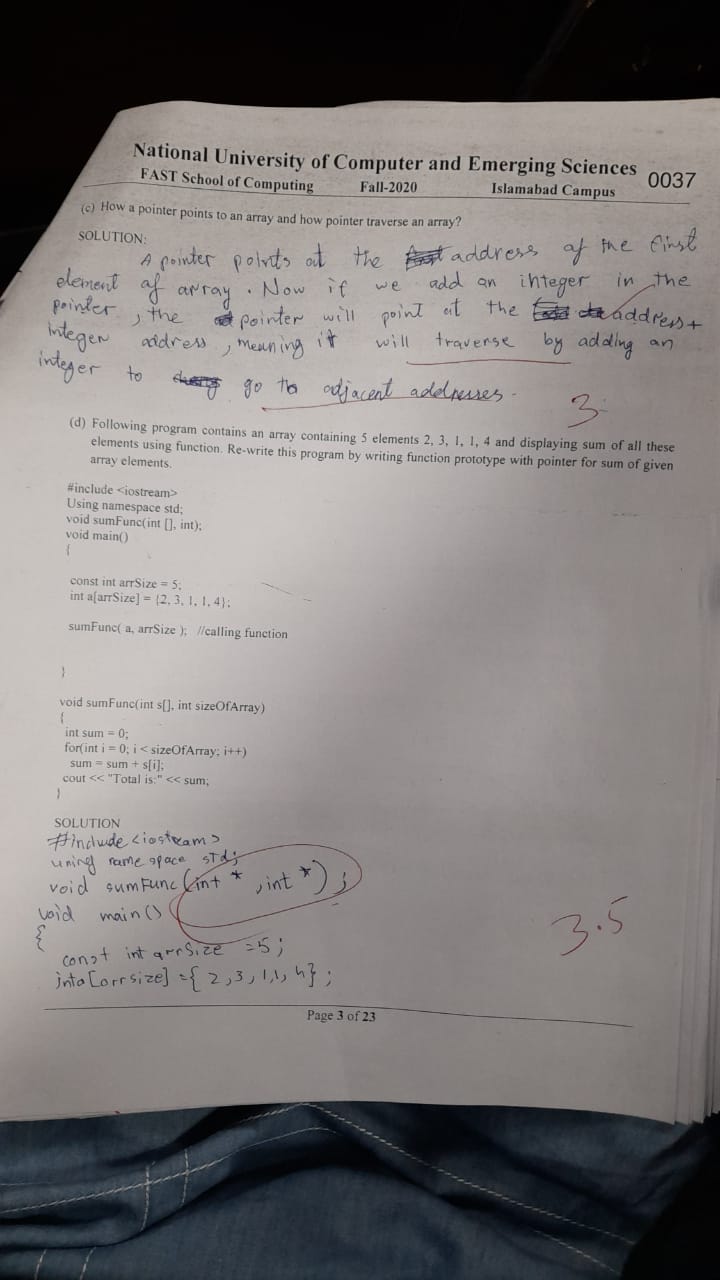 National University of Computer and Emerging Sciences 0037
FAST School of Computing Fall-2020 Islamabad Campus
(c) How a pointer points to an array and how pointer traverse an array?
SOLUTION:
A pointer points at the address of the first
element of array. Now if we add an integer in the
pointer, the pointer will point at the address +
integer address, meaning it will traverse by adding an
integer to go to adjacent addresses.
3
(d) Following program contains an array containing 5 elements 2, 3, 1, 1, 4 and displaying sum of all these
elements using function. Re-write this program by writing function prototype with pointer for sum of given
array elements.
#include <iostream>
Using namespace std;
void sumFunc(int [], int);
void main()
{
const int arrSize = 5;
int a[arrSize] = {2, 3, 1, 1, 4};
sumFunc( a, arrSize ); //calling function
}
void sumFunc(int s[], int sizeOfArray)
{
int sum = 0;
for(int i = 0; i < sizeOfArray; i++)
sum = sum + s[i];
cout << "Total is:" << sum;
}
SOLUTION
#include <iostream>
using name space std;
void sumFunc (int * , int *) ;
void main()
{
3.5
const int arrSize =5;
int a[arrsize] ={ 2,3,1,1,4} ;
Page 3 of 23